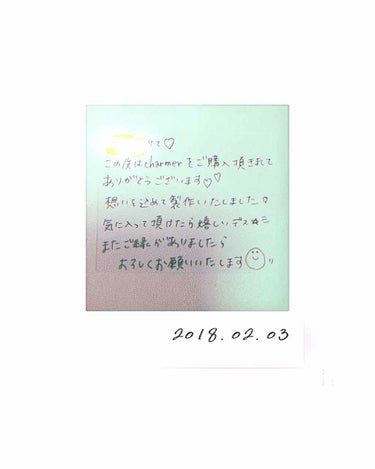 けて♡
この度はcharmerをご購入頂きまして
ありがとうございます♡♡
想いを込めて製作いたしました!
気に入って頂けたら嬉しいデス☆ミ
またご縁がありましたら
よろしくお願いいたします
2018.02.03